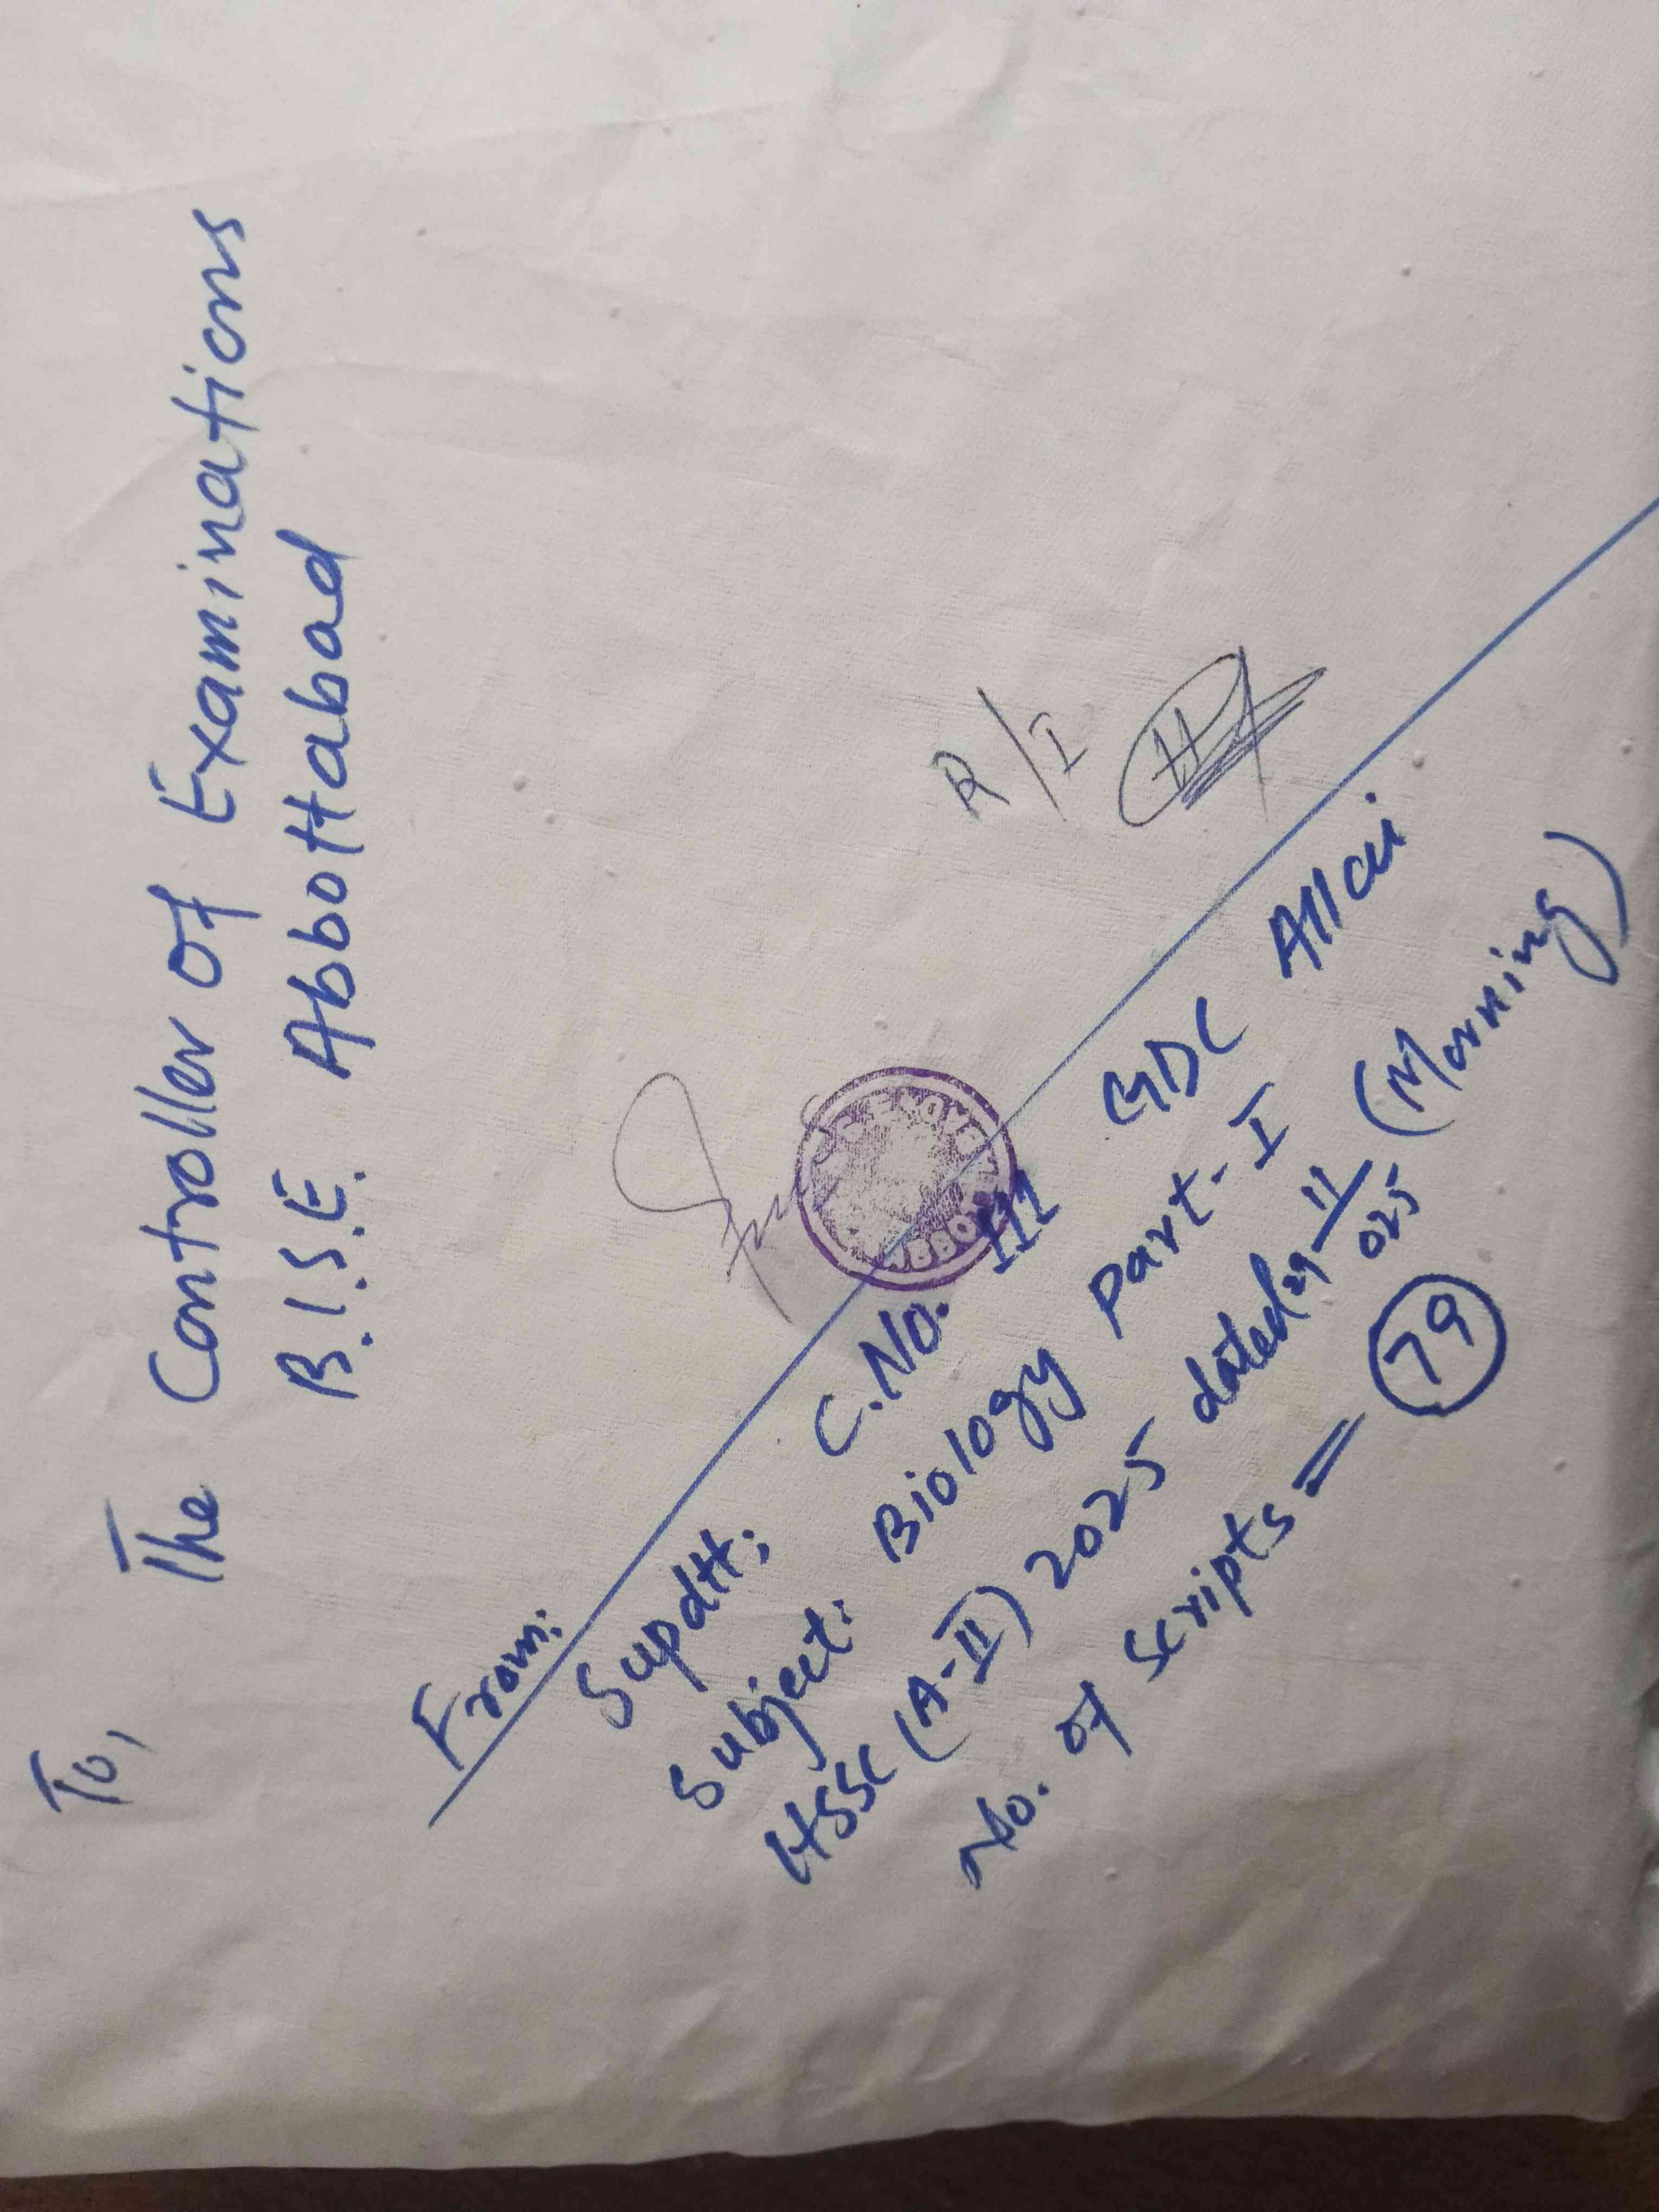 To,
The Controller of Examinations
B.I.S.E. Abbottabad
R/I
From:
Supdtt: C.No. 111 GDC Allai
Subject: Biology Part-I
HSSC (A-II) 2025 dated 29-11/025 (Morning)
No. of scripts = 79